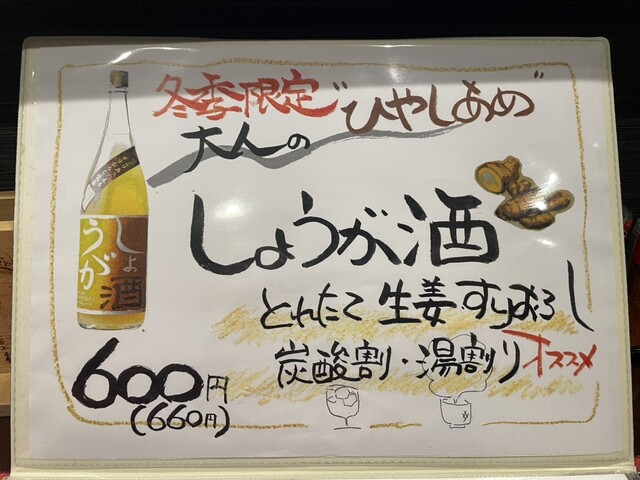 冬季限定"ひやしあめ"
大人の
しょうが酒
とれたて生姜すりおろし
炭酸割・湯割りオススメ
600円
(660円)
しょうが酒